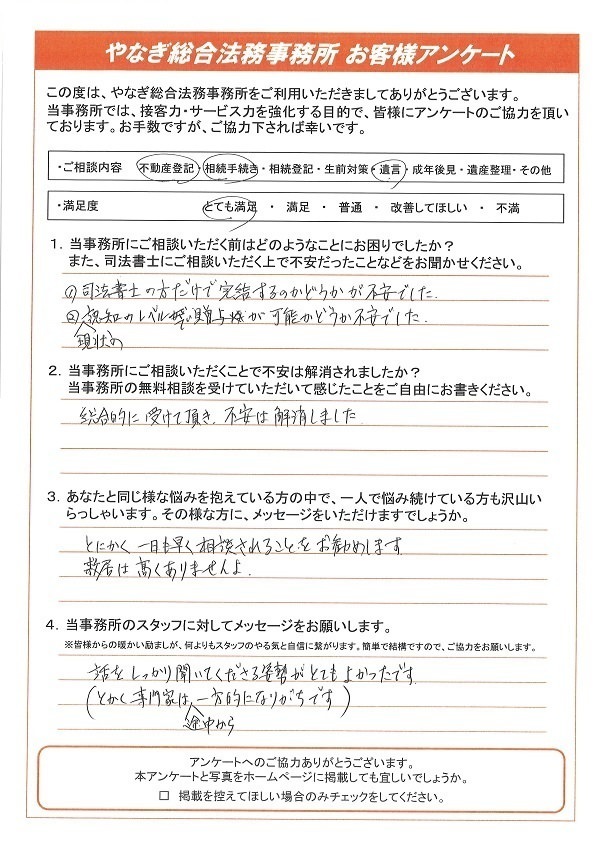 やなぎ総合法務事務所 お客様アンケート
この度は、やなぎ総合法務事務所をご利用いただきましてありがとうございます。
当事務所では、接客力・サービス力を強化する目的で、皆様にアンケートのご協力を頂い
ております。お手数ですが、ご協力下されば幸いです。
・ご相談内容 不動産登記・相続手続き・相続登記・生前対策・遺言・成年後見・遺産整理・その他
・満足度 とても満足 ・ 満足 ・ 普通 ・ 改善してほしい ・ 不満
1. 当事務所にご相談いただく前はどのようなことにお困りでしたか？
また、司法書士にご相談いただく上で不安だったことなどをお聞かせください。
①司法書士の方だけで完結するのかどうかが不安でした.
②認知のレベルで贈与等が可能かどうか不安でした.
現状の
2. 当事務所にご相談いただくことで不安は解消されましたか？
当事務所の無料相談を受けていただいて感じたことをご自由にお書きください。
総合的に受けて頂き、不安は解消しました
3. あなたと同じ様な悩みを抱えている方の中で、一人で悩み続けている方も沢山い
らっしゃいます。その様な方に、メッセージをいただけますでしょうか。
とにかく一日も早く相談されることをお勧めします
敷居は高くありませんよ.
4. 当事務所のスタッフに対してメッセージをお願いします。
※皆様からの暖かい励ましが、何よりもスタッフのやる気と自信に繋がります。簡単で結構ですので、ご協力をお願いします。
話をしっかり聞いてくださる姿勢がとてもよかったです.
(とかく専門家は、一方的になりがちです)
途中から
アンケートへのご協力ありがとうございます。
本アンケートと写真をホームページに掲載しても宜しいでしょうか。
□ 掲載を控えてほしい場合のみチェックをしてください。